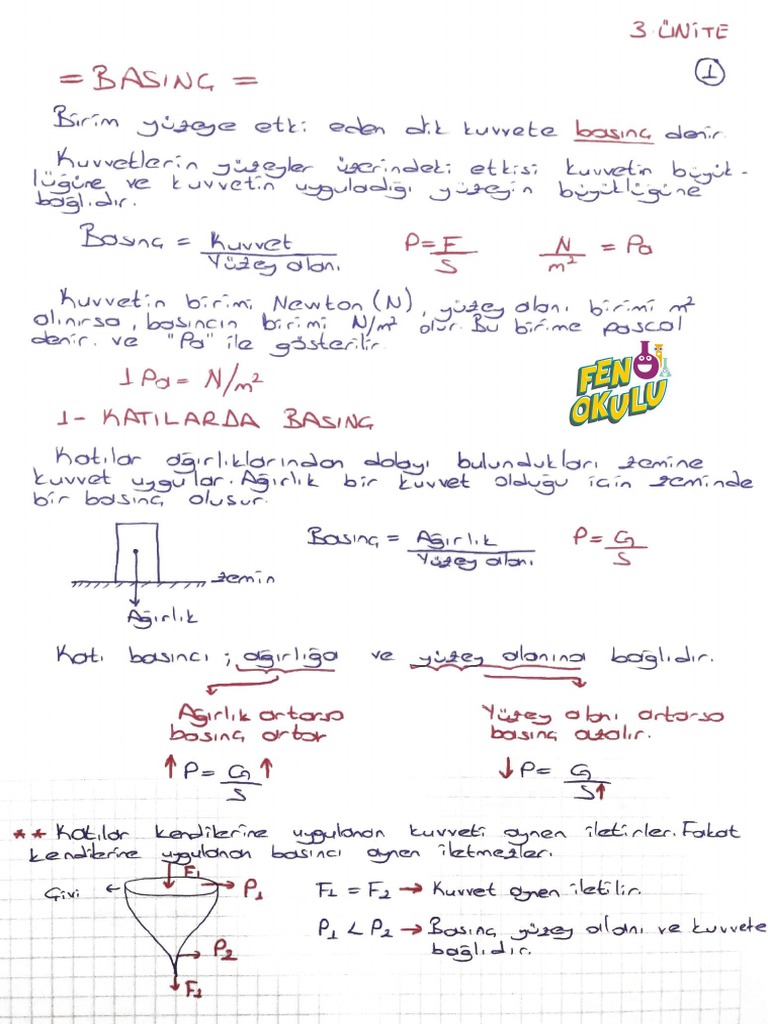 3. ÜNİTE
1
= BASINÇ =
Birim yüzeye etki eden dik kuvvete basınç denir.
Kuvvetlerin yüzeyler üzerindeki etkisi kuvvetin büyük-
lüğüne ve kuvvetin uyguladığı yüzeyin büyüklüğüne
bağlıdır.
Basınç = Kuvvet / Yüzey alanı P = F / S N / m² = Pa
Kuvvetin birimi Newton (N), yüzey alanı birimi m²
alınırsa, basıncın birimi N/m² olur. Bu birime pascal
denir. ve "Pa" ile gösterilir.
1 Pa = N/m²
FEN OKULU
1- KATILARDA BASINÇ
Katılar ağırlıklarından dolayı bulundukları zemine
kuvvet uygular. Ağırlık bir kuvvet olduğu için zeminde
bir basınç oluşur.
Basınç = Ağırlık / Yüzey alanı P = G / S
zemin
Ağırlık
Katı basıncı ; ağırlığa ve yüzey alanına bağlıdır.
Ağırlık artarsa Yüzey alanı artarsa
basınç artar basınç azalır.
↑ P = G ↑ / S ↓ P = G / S ↑
** Katılar kendilerine uygulanan kuvveti aynen iletirler. Fakat
kendilerine uygulanan basıncı aynen iletmezler.
F1
Çivi P1 F1 = F2 → Kuvvet aynen iletilir.
P1 < P2 → Basınç yüzey alanı ve kuvvete
P2 bağlıdır.
F2